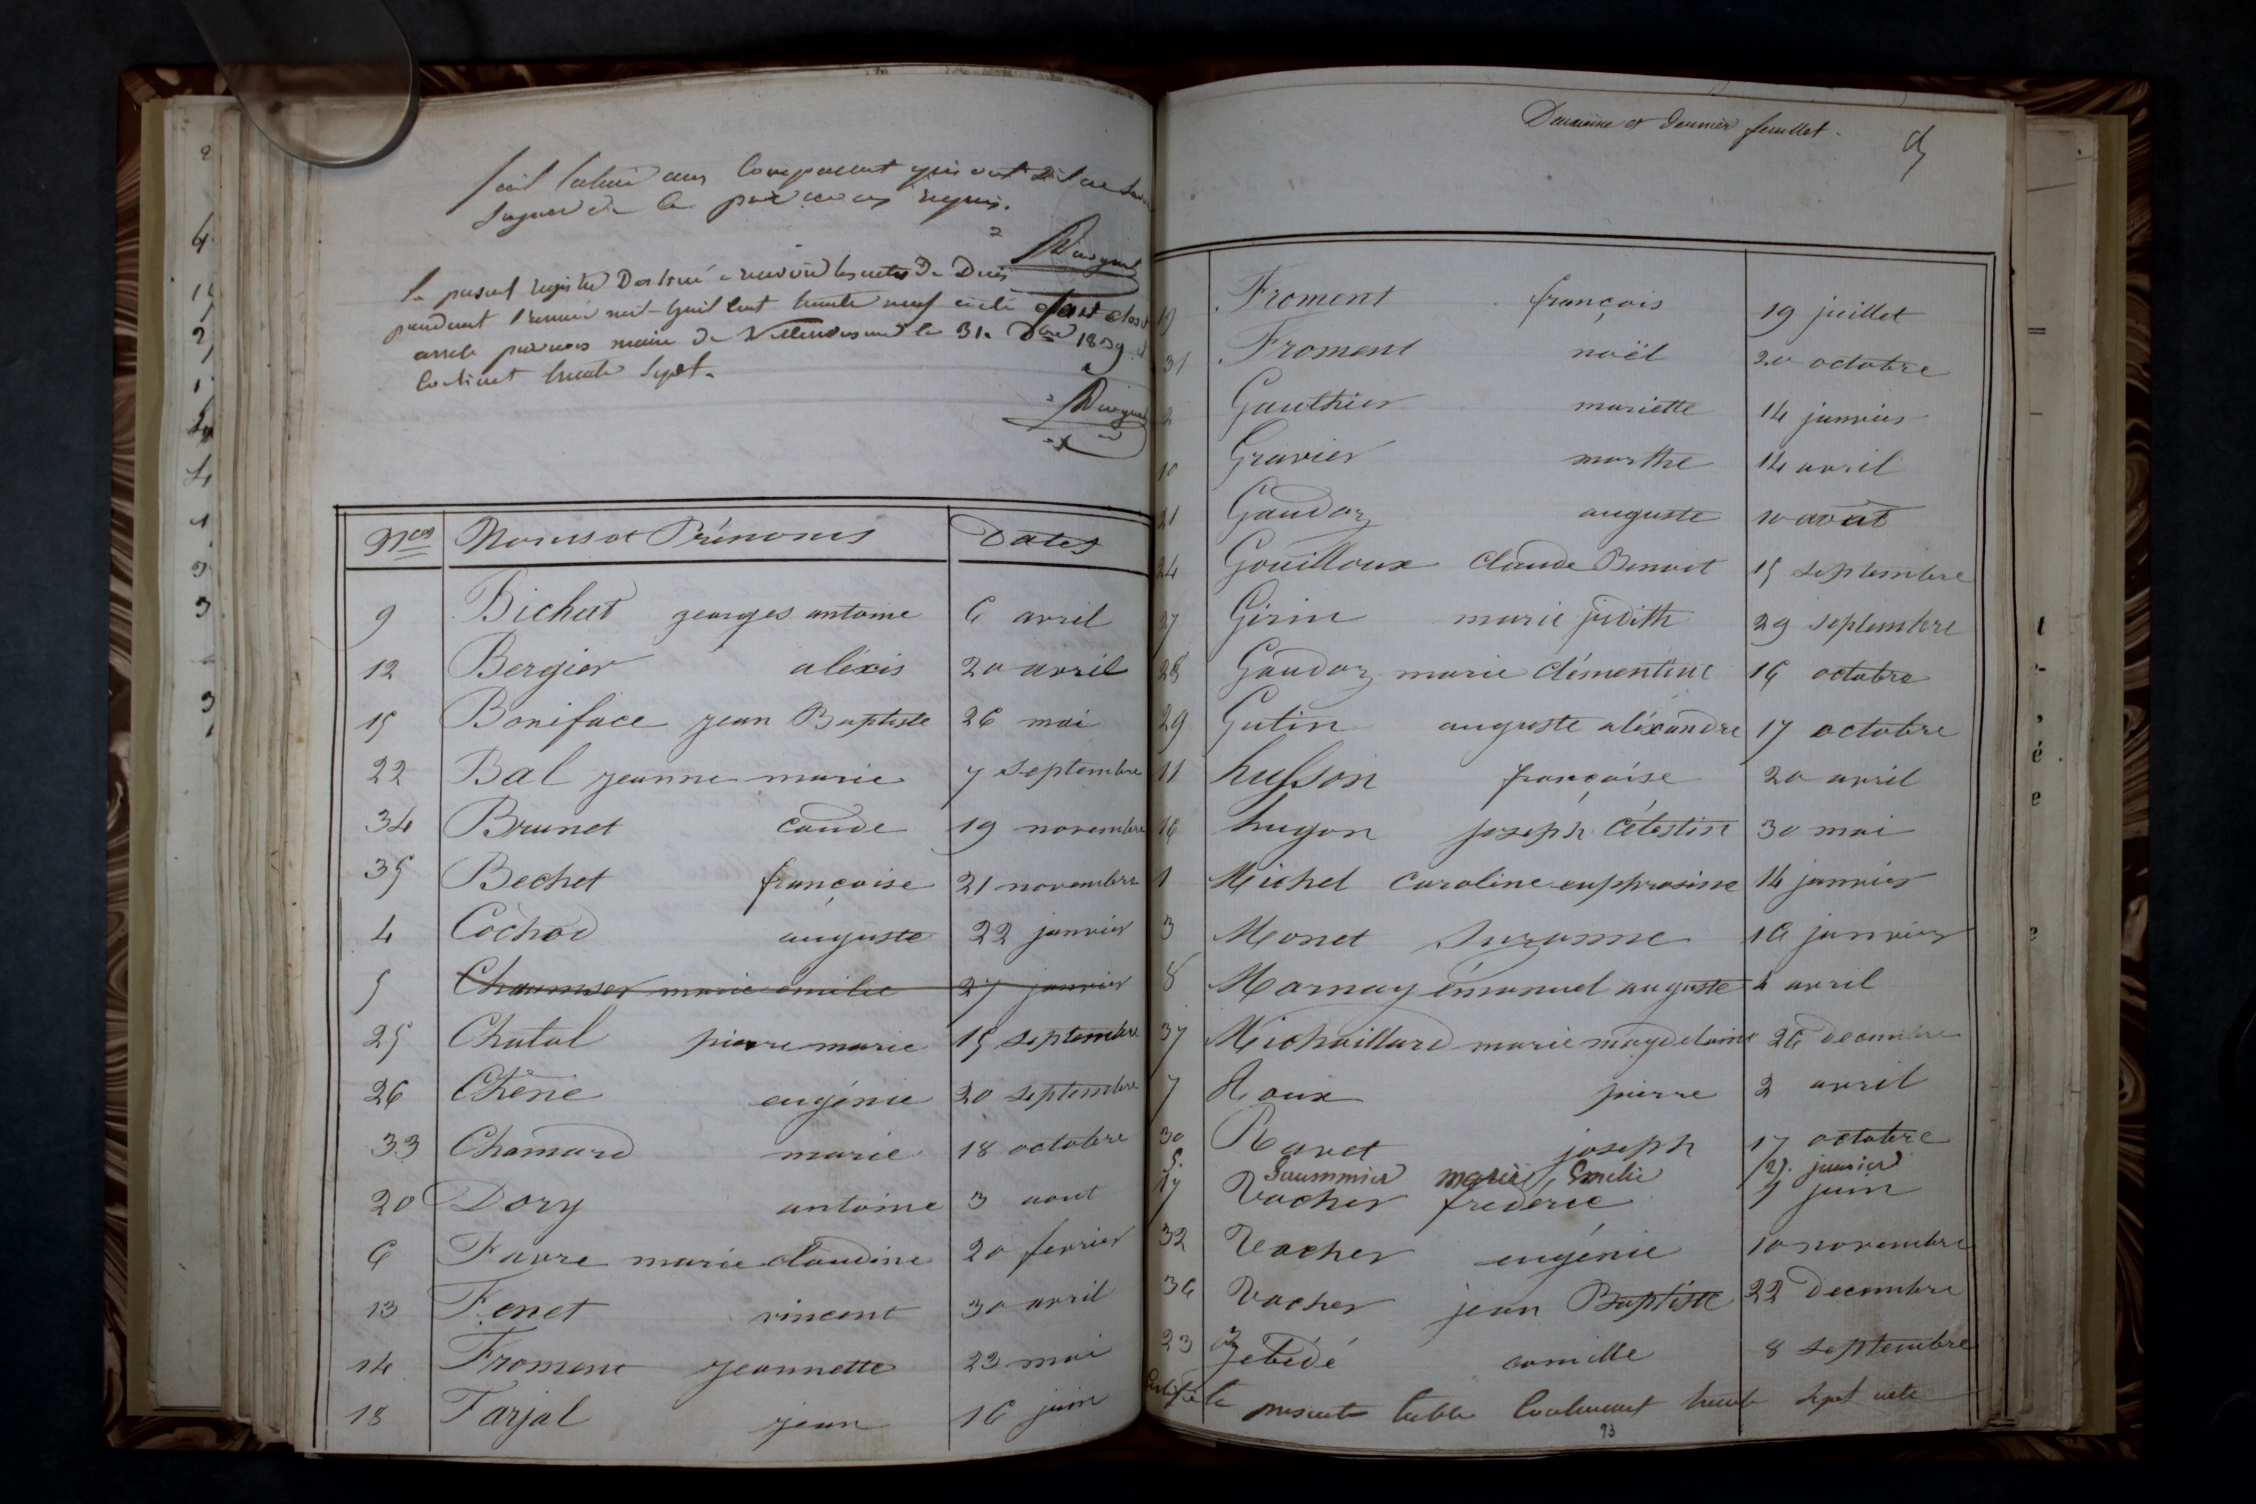 fait lecture aux comparant qui ont dit ne savoir
signer de ce par nous requis.
Le present registre Destiné a recevoir les actes de Décès
pendant l'année mil huit cent trente neuf a été clos et
arrêté par nous maire de Villevieux le 31 Dbre 1839 et
Contient trente sept.
Nos Noms et Prénoms Dates
9 Bichat georges antoine 6 avril
12 Bergier aléxis 20 avril
15 Boniface jean Baptiste 26 mai
22 Bal jeanne marie 7 septembre
34 Brunet caude 19 novembre
35 Bechet françoise 21 novembre
4 Cochod auguste 22 janvier
5 Chaumier marie émilie 27 janvier
25 Chatal pierre marie 15 septembre
26 Chêne eugénie 20 septembre
33 Chamard marie 18 octobre
20 Dory antoine 3 aout
6 Favre marie claudine 20 fevrier
13 Fenet vincent 30 avril
14 Froment jeannette 23 mai
18 Farjal jean 16 juin
Douzième et dernier feuillet.
19 Froment françois 19 juillet
31 Froment noël 20 octobre
2 Gauthier mariette 14 janvier
10 Gravier marthe 14 avril
21 Gaudoz auguste 10 avout
24 Gouilloux claude Benoit 15 septembre
27 Girin marie judith 29 septembre
28 Gaudoz marie clémentine 16 octobre
29 Gutin auguste aléxandre 17 octobre
11 husson françoise 20 avril
16 hugon joseph célestin 30 mai
1 Michel caroline euphrosine 14 janvier
3 Monet Suzanne 16 janvier
8 Marnay émanuel auguste 4 avril
37 Michaillard marie magdelaine 26 decembre
7 Roux pierre 2 avril
30 Ravet joseph 17 octobre
5. Saummier marie Emilie 27. janvier
17 Vacher frederic 9 juin
32 Vacher eugénie 10 novembre
36 Vacher jean Baptiste 22 decembre
23 Zebédé camille 8 septembre
Certifié la presente table Contenant trente sept acte
93